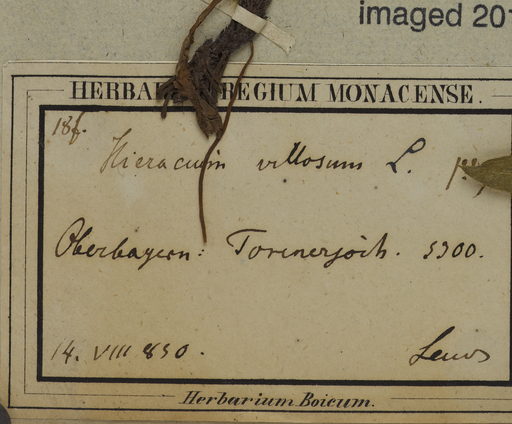 imaged 201
HERBARIUM REGIUM MONACENSE.
18f.
Hieracium villosum L.
Oberbayern: Torenerjoch. 5300.
14. VIII 850.
Herbarium Boicum.